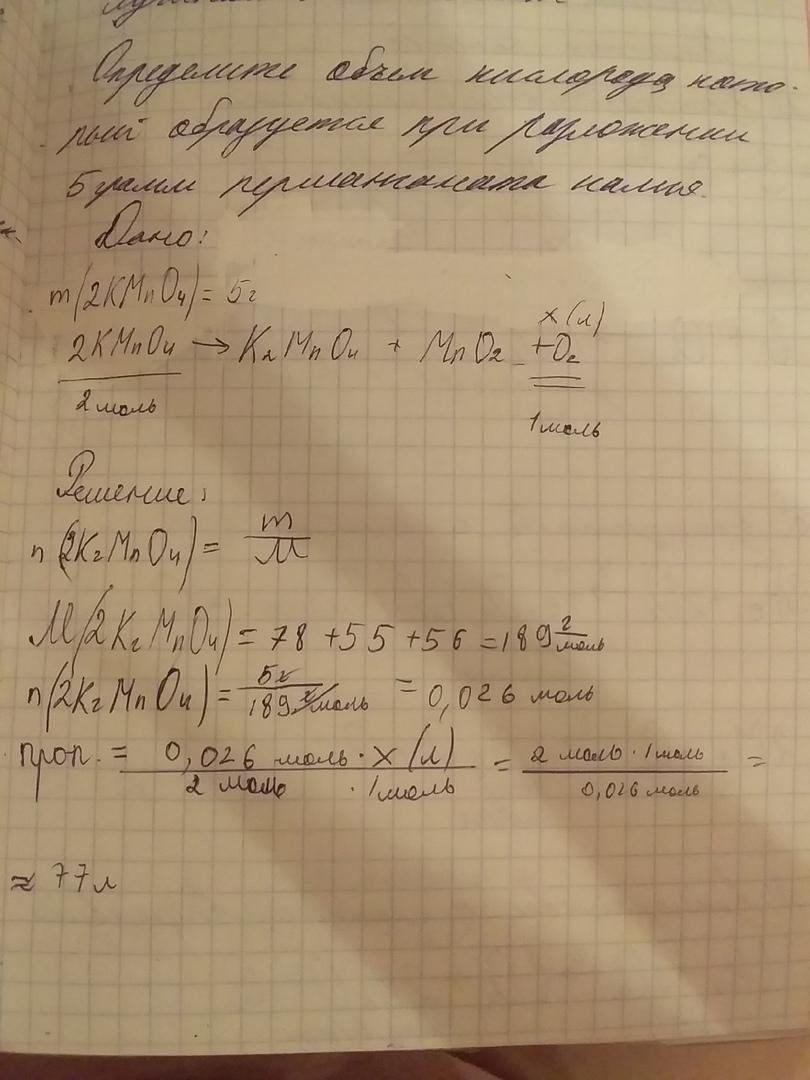 Определите объем кислорода, кото-
рый образуется при разложении
5 грамм перманганата калия.
Дано:
m(2KMnO4) = 5г
x(л)
2KMnO4 → K2MnO4 + MnO2 + O2
2 моль 1 моль
Решение:
n(2K2MnO4) = m/M
M(2K2MnO4) = 78 + 55 + 56 = 189 г/моль
n(2K2MnO4) = 5г/189 г/моль = 0,026 моль
проп. = 0,026 моль · x(л) / 2 моль · 1 моль = 2 моль · 1 моль / 0,026 моль =
≈ 77 л